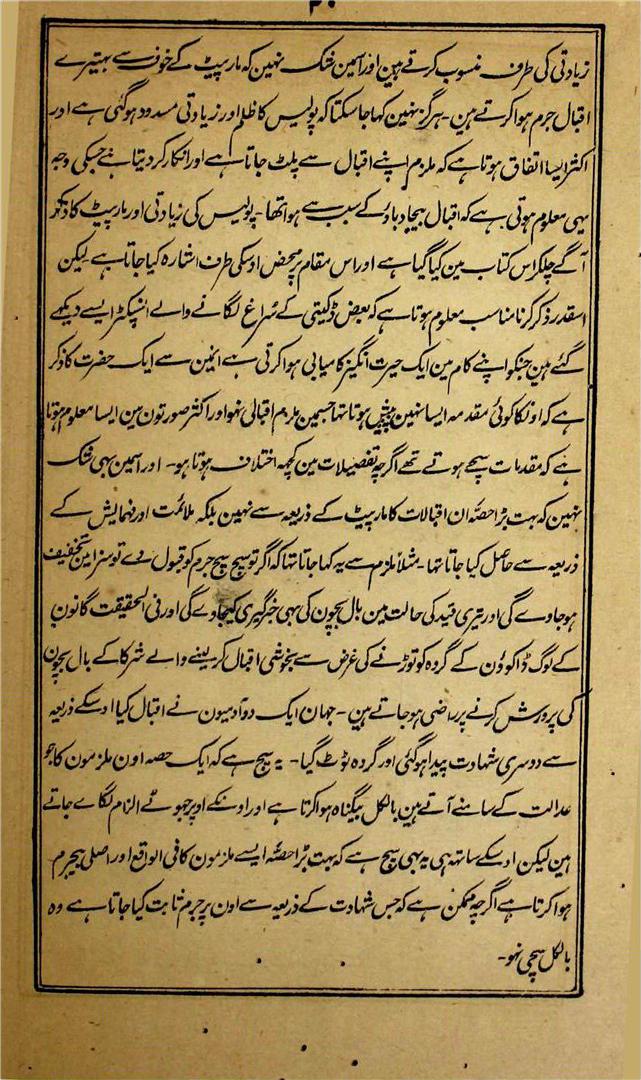 ۲۰
زیادتی کی طرف منسوب کرتے ہین اور اسمین شک نہین کہ مارپیٹ کے خوف سے بہتیرے
اقبال جرم ہوا کرتے ہین۔ ہرگز نہین کہا جا سکتا کہ پولیس کا ظلم اور زیادتی مسدود ہو گئی ہے اور
اکثر ایسا اتفاق ہوتا ہے کہ ملزم اپنے اقبال سے پلٹ جاتا ہے اور انکار کر دیتا ہے جسکی وجہ
یہی معلوم ہوتی ہے کہ اقبال بیجا دباؤ کے سبب سے ہوا تھا۔ پولیس کی زیادتی اور مارپیٹ کا ذکر
آگے چلکر اس کتاب مین کیا گیا ہے اور اس مقام پر محض اوسکی طرف اشارہ کیا جاتا ہے لیکن
اسقدر ذکر کرنا مناسب معلوم ہوتا ہے کہ بعض ڈکیتی کے سُراغ لگانے والے انسپکٹر ایسے دیکھے
گئے ہین جنکو اپنے کام مین ایک حیرت انگیز کامیابی ہوا کرتی ہے انہین سے ایک حضرت کا ذکر
ہے کہ اونکا کوئی مقدمہ ایسا نہین پیش ہوتا تہا جسمین ملزم اقبالی نہو اور اکثر صورتون مین ایسا معلوم ہوتا
ہے کہ مقدمات سچے ہوتے تھے اگرچہ تفصیلات مین کچہہ اختلاف ہوتا ہو۔ اور اسمین بہی شک
نہین کہ بہت بڑا حصّہ ان اقبالات کا مارپیٹ کے ذریعہ سے نہین بلکہ ملائمت اور فہمایش کے
ذریعہ سے حاصل کیا جاتا تہا۔ مثلاً ملزم سے یہ کہا جاتا تہا کہ اگر تو سچ سچ جرم کو قبول دے تو سزا مین تخفیف
ہو جاوے گی اور تیری قید کی حالت مین بال بچون کی بہی خبر گیری کیجاوے گی اور فی الحقیقت گانون
کے لوگ ڈاکوؤن کے گروہ کو توڑنے کی غرض سے بخوشی اقبال کر لینے والے شرکا کے بال بچون
کی پرورش کرنے پر راضی ہو جاتے ہین۔ جہان ایک دو آدمیون نے اقبال کیا اوسکے ذریعہ
سے دوسری شہادت پیدا ہو گئی اور گروہ ٹوٹ گیا۔ یہ سچ ہے کہ ایک حصہ اون ملزمون کا جو
عدالت کے سامنے آتے ہین بالکل بیگناہ ہوا کرتا ہے اور اونکے اوپر جہوٹے الزام لگاے جاتے
ہین لیکن اوسکے ساتہہ ہی یہ بہی سچ ہے کہ بہت بڑا حصّہ ایسے ملزمون کا فی الواقع اور اصلی مجرم
ہوا کرتا ہے اگرچہ ممکن ہے کہ جس شہادت کے ذریعہ سے اون پر جرم ثابت کیا جاتا ہے وہ
بالکل سچی نہو۔